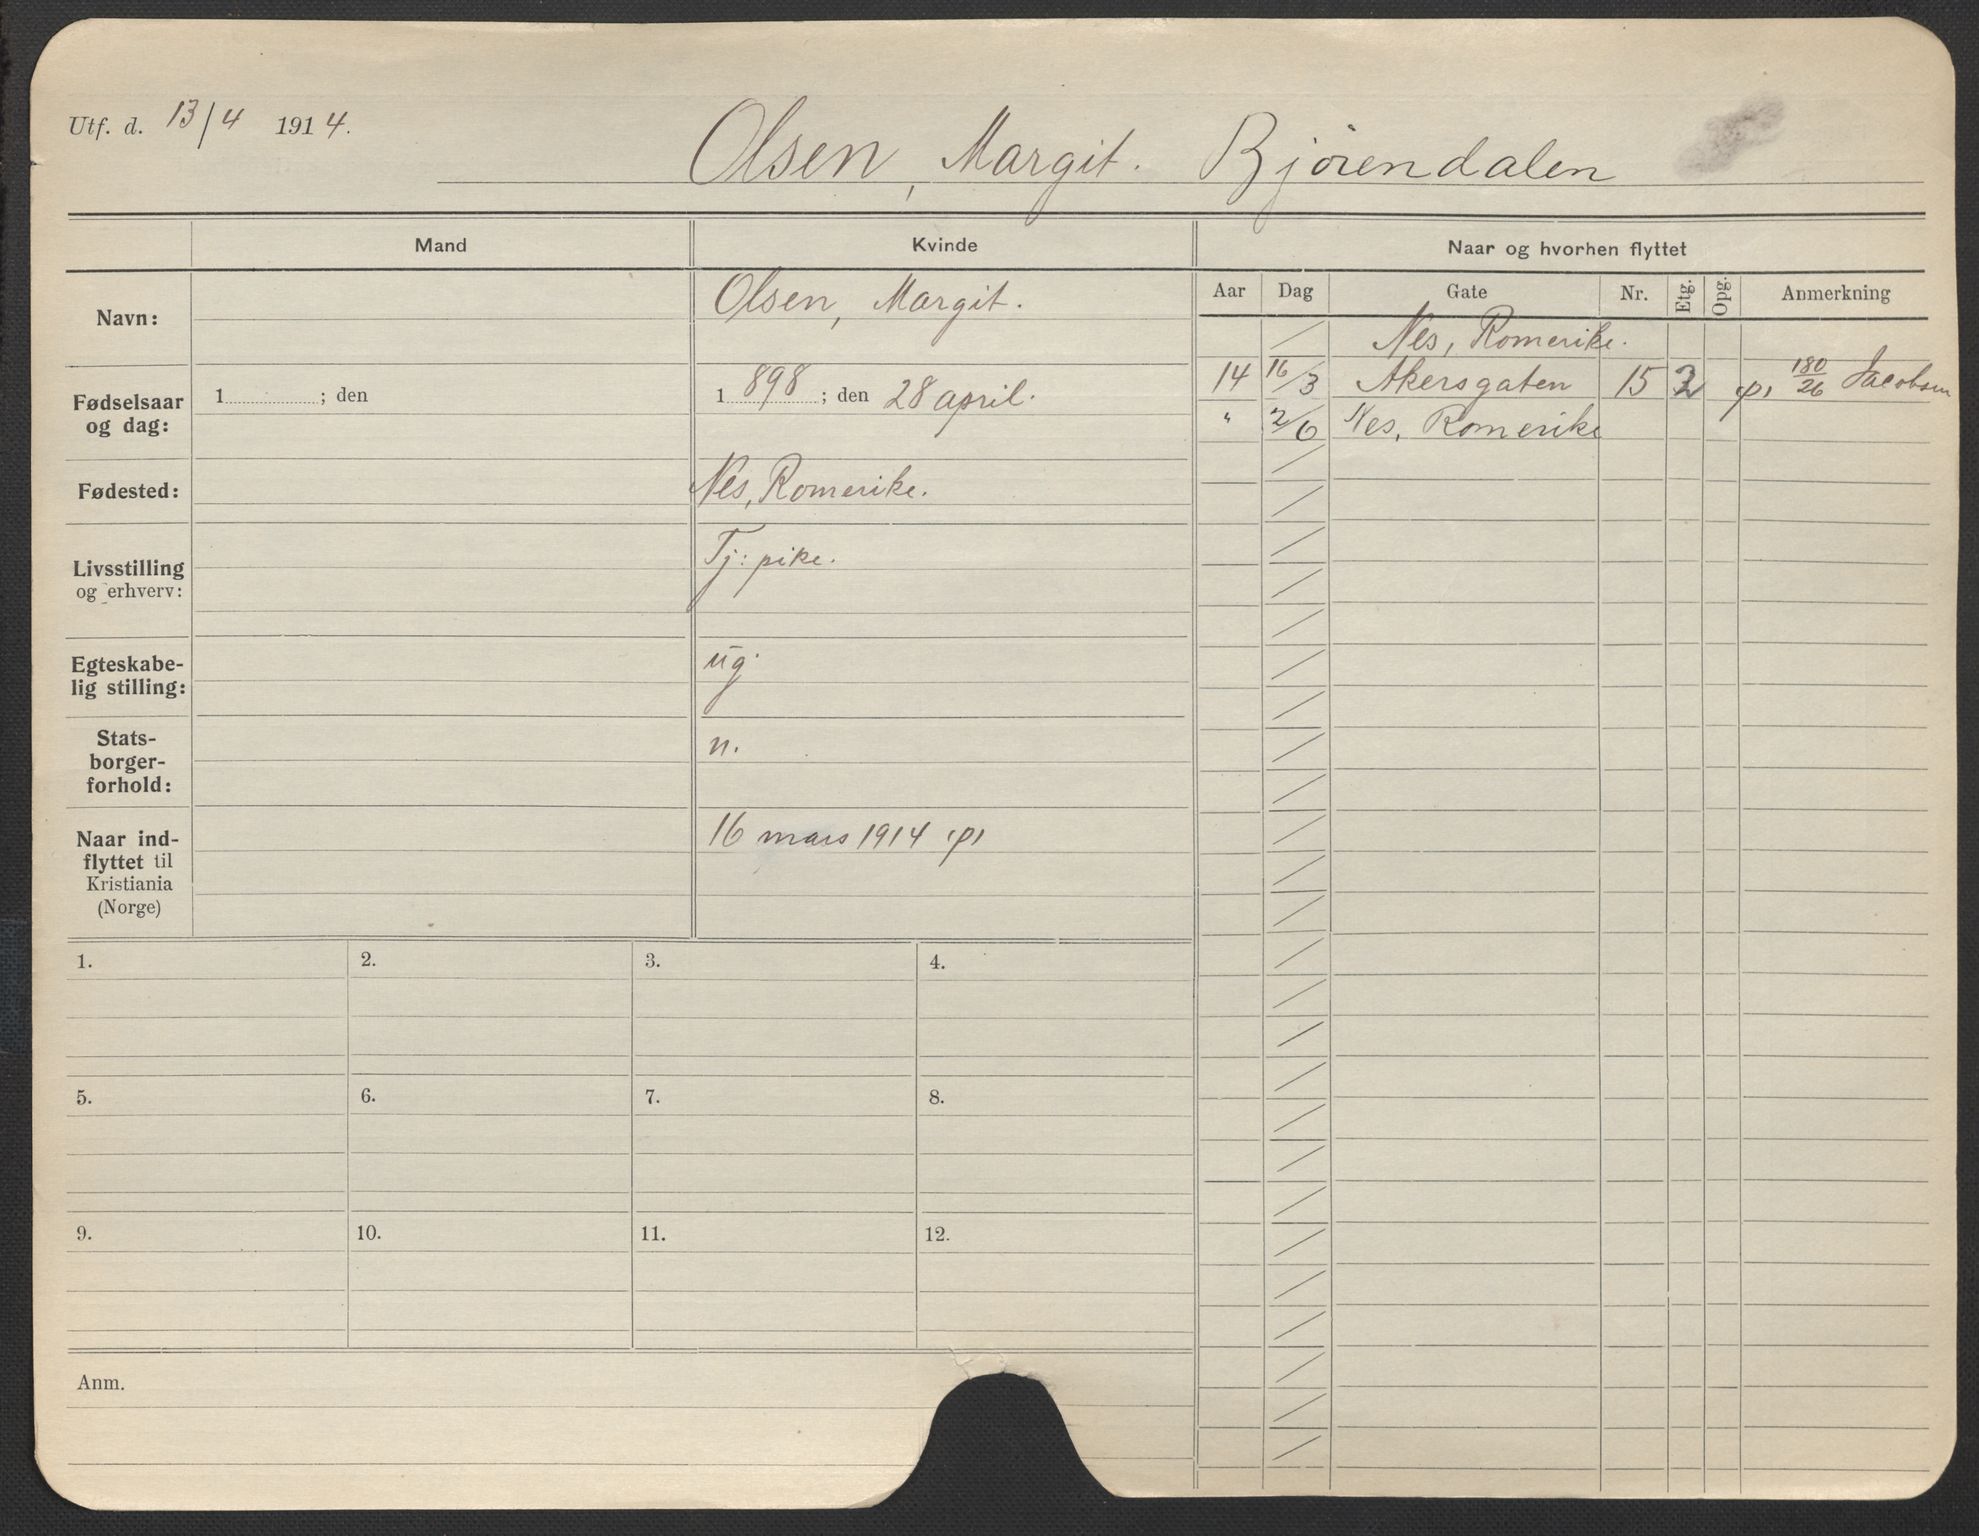 Utf. d. 13/4 1914.
Olsen, Margit. Bjørendalen
Mand
Kvinde
Naar og hvorhen flyttet
Navn:
Olsen, Margit.
Aar Dag Gate Nr. Etg. Opg. Anmerkning
Nes, Romerike.
14 16/3 Akersgaten 15 2 180/26 Jacobsen
" 2/6 Nes, Romerike
Fødselsaar
og dag:
1 ; den
1 898 ; den 28 april.
Fødested:
Nes, Romerike.
Livsstilling
og erhverv:
Tj: pike.
Egteskabe-
lig stilling:
ug.
Stats-
borger-
forhold:
n.
Naar ind-
flyttet til
Kristiania
(Norge)
16 mars 1914
1. 2. 3. 4.
5. 6. 7. 8.
9. 10. 11. 12.
Anm.